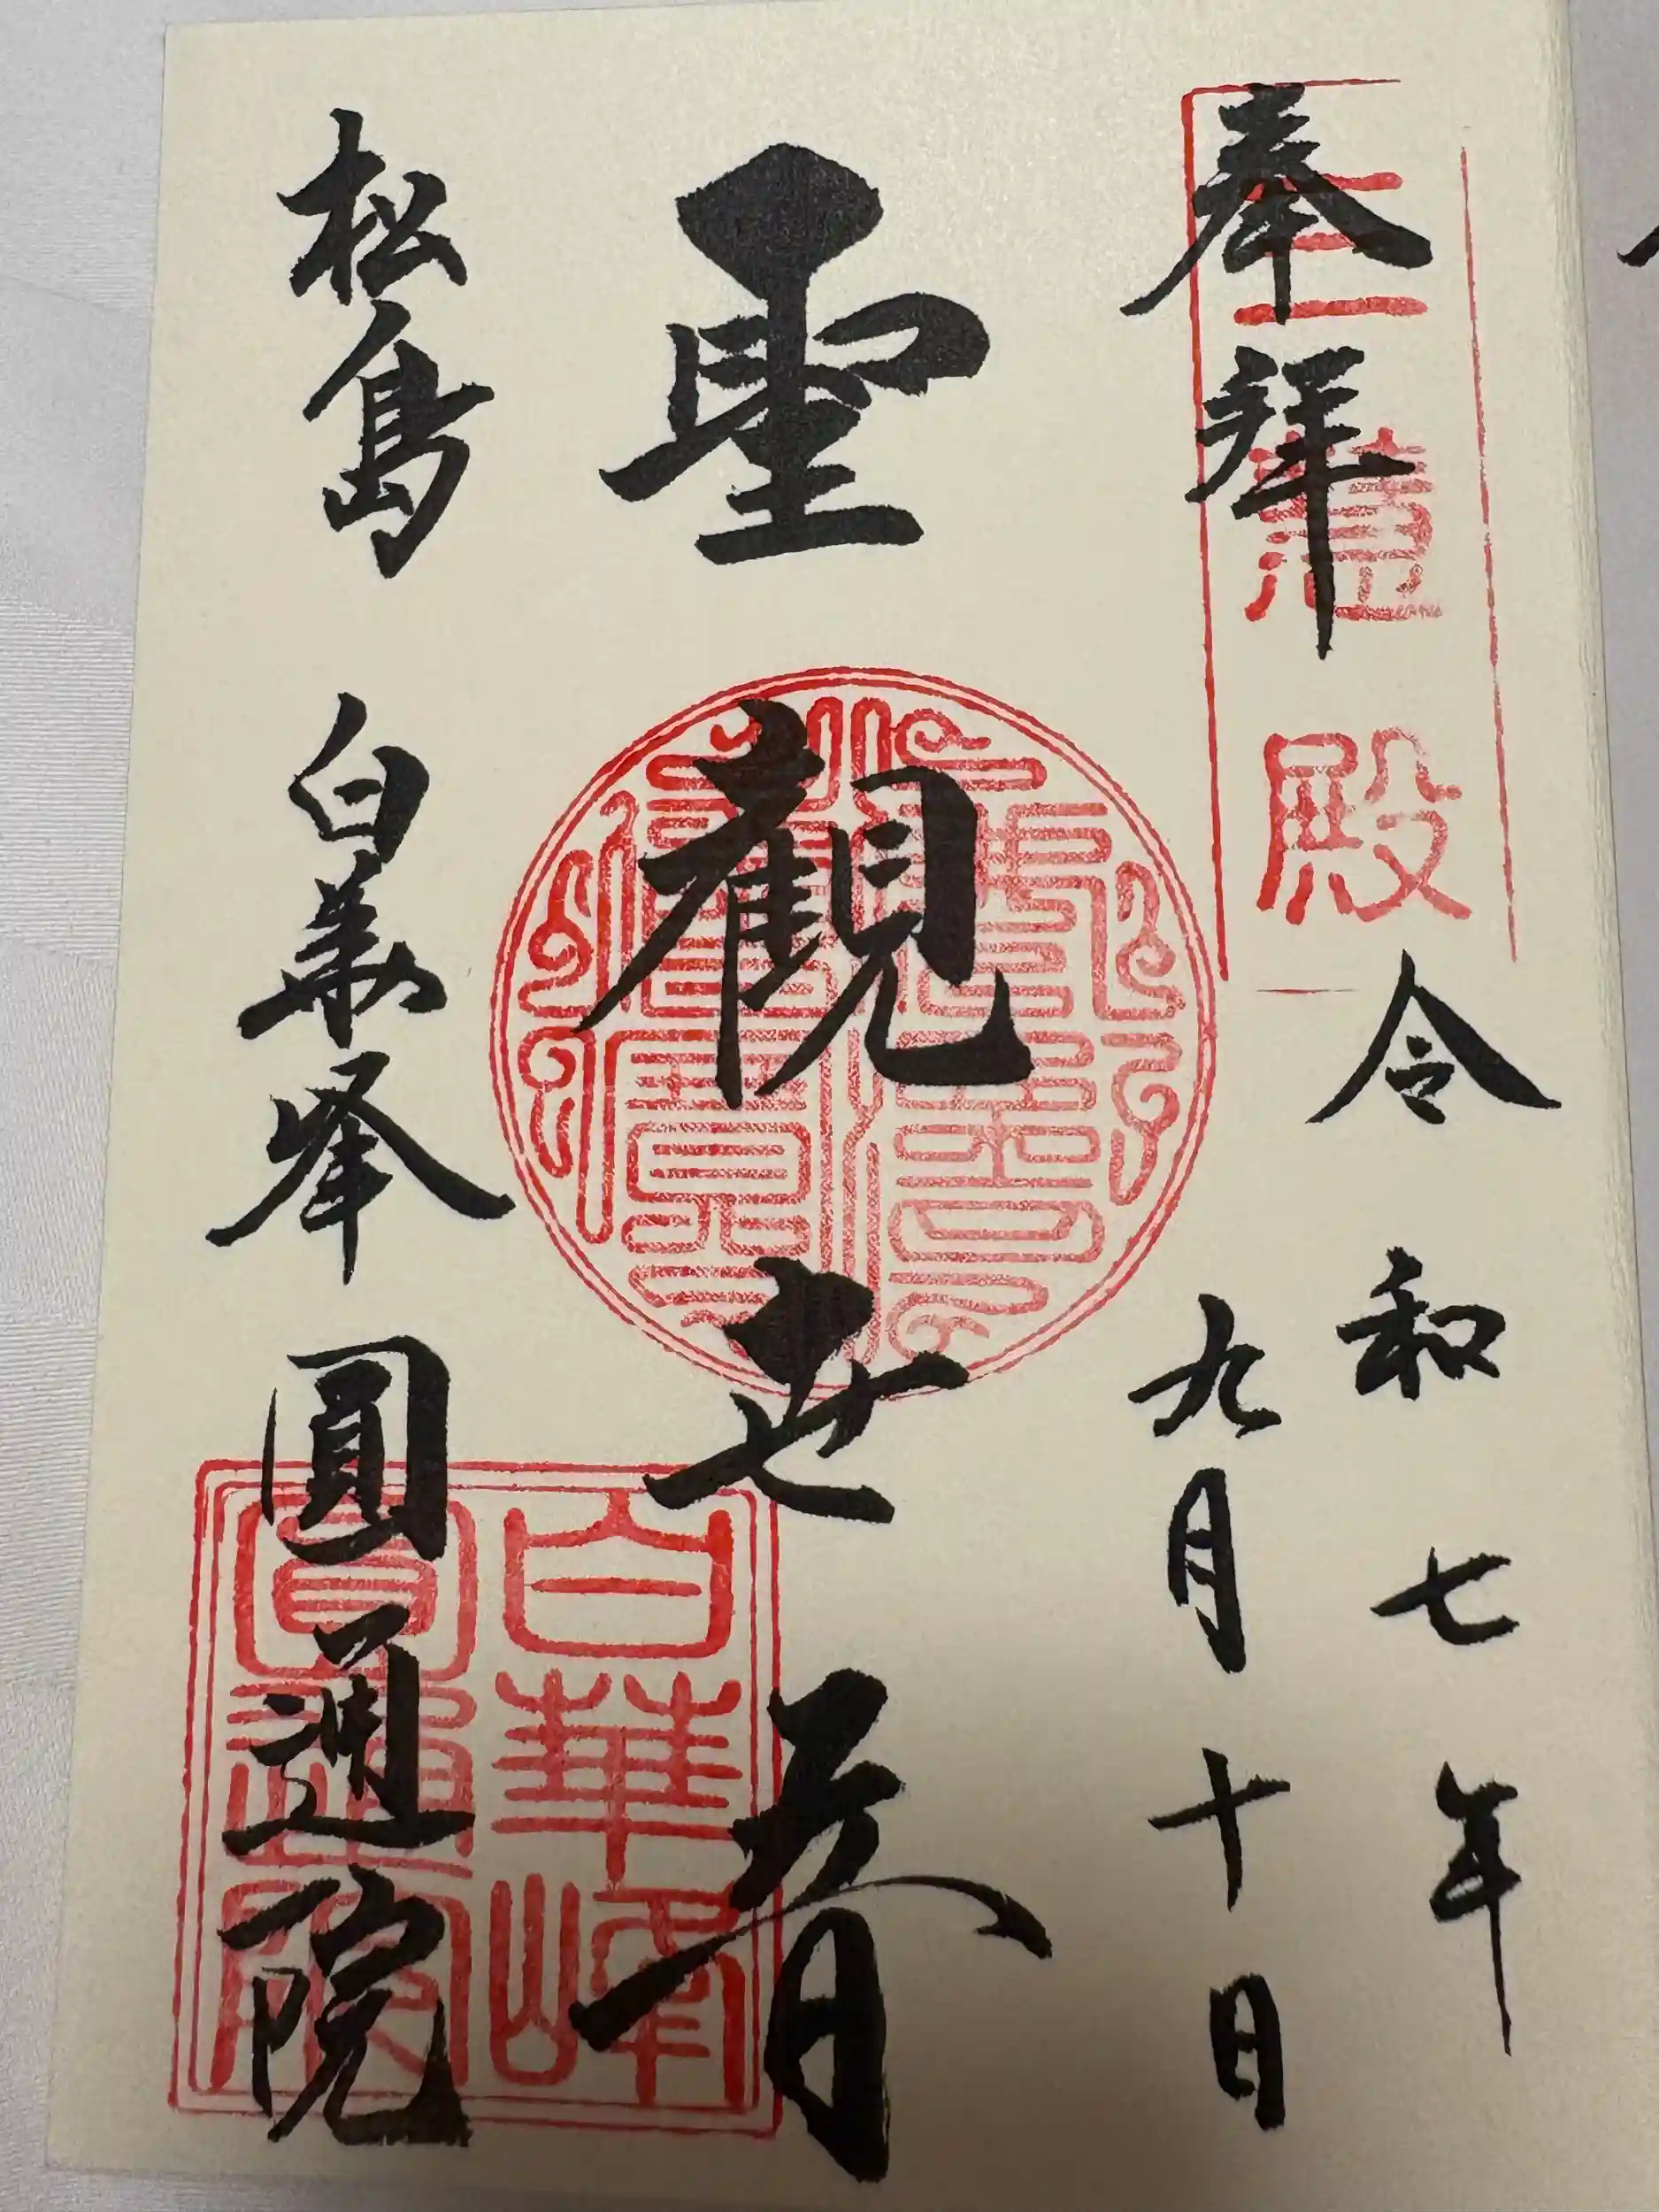 奉拝
三慧殿
令和七年
九月十日
聖觀世音
松島 白華峯 圓通院
白華峰
圓通院